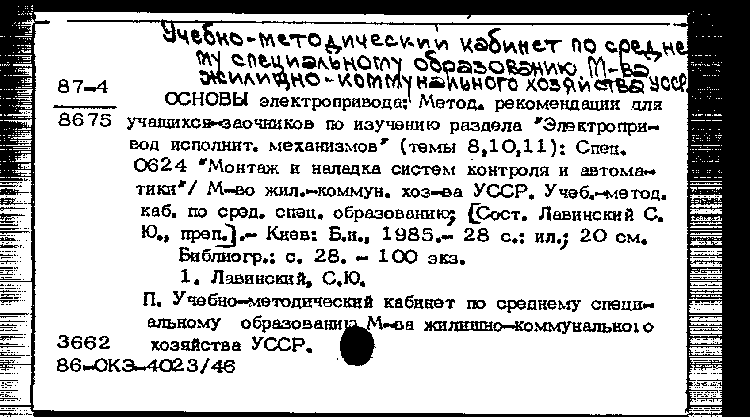 Учебно-методический кабинет по средне
му специальному образованию М-ва
жилищно-коммунального хозяйства УССР
87-4
8675
ОСНОВЫ электропривода: Метод. рекомендации для
учащихся-заочников по изучению раздела "Электропри-
вод исполнит. механизмов" (темы 8,10,11): Спец.
0624 "Монтаж и наладка систем контроля и автома-
тики"/ М-во жил.-коммун. хоз-ва УССР. Учеб.-метод.
каб. по сред. спец. образованию; [Сост. Лавинский С.
Ю., преп.].- Киев: Б.и., 1985.- 28 с.: ил.; 20 см.
Библиогр.: с. 28. - 100 экз.
1. Лавинский, С.Ю.
П. Учебно-методический кабинет по среднему специ-
альному образованию М-ва жилищно-коммунального
3662 хозяйства УССР.
86-ОКЭ-4023/46